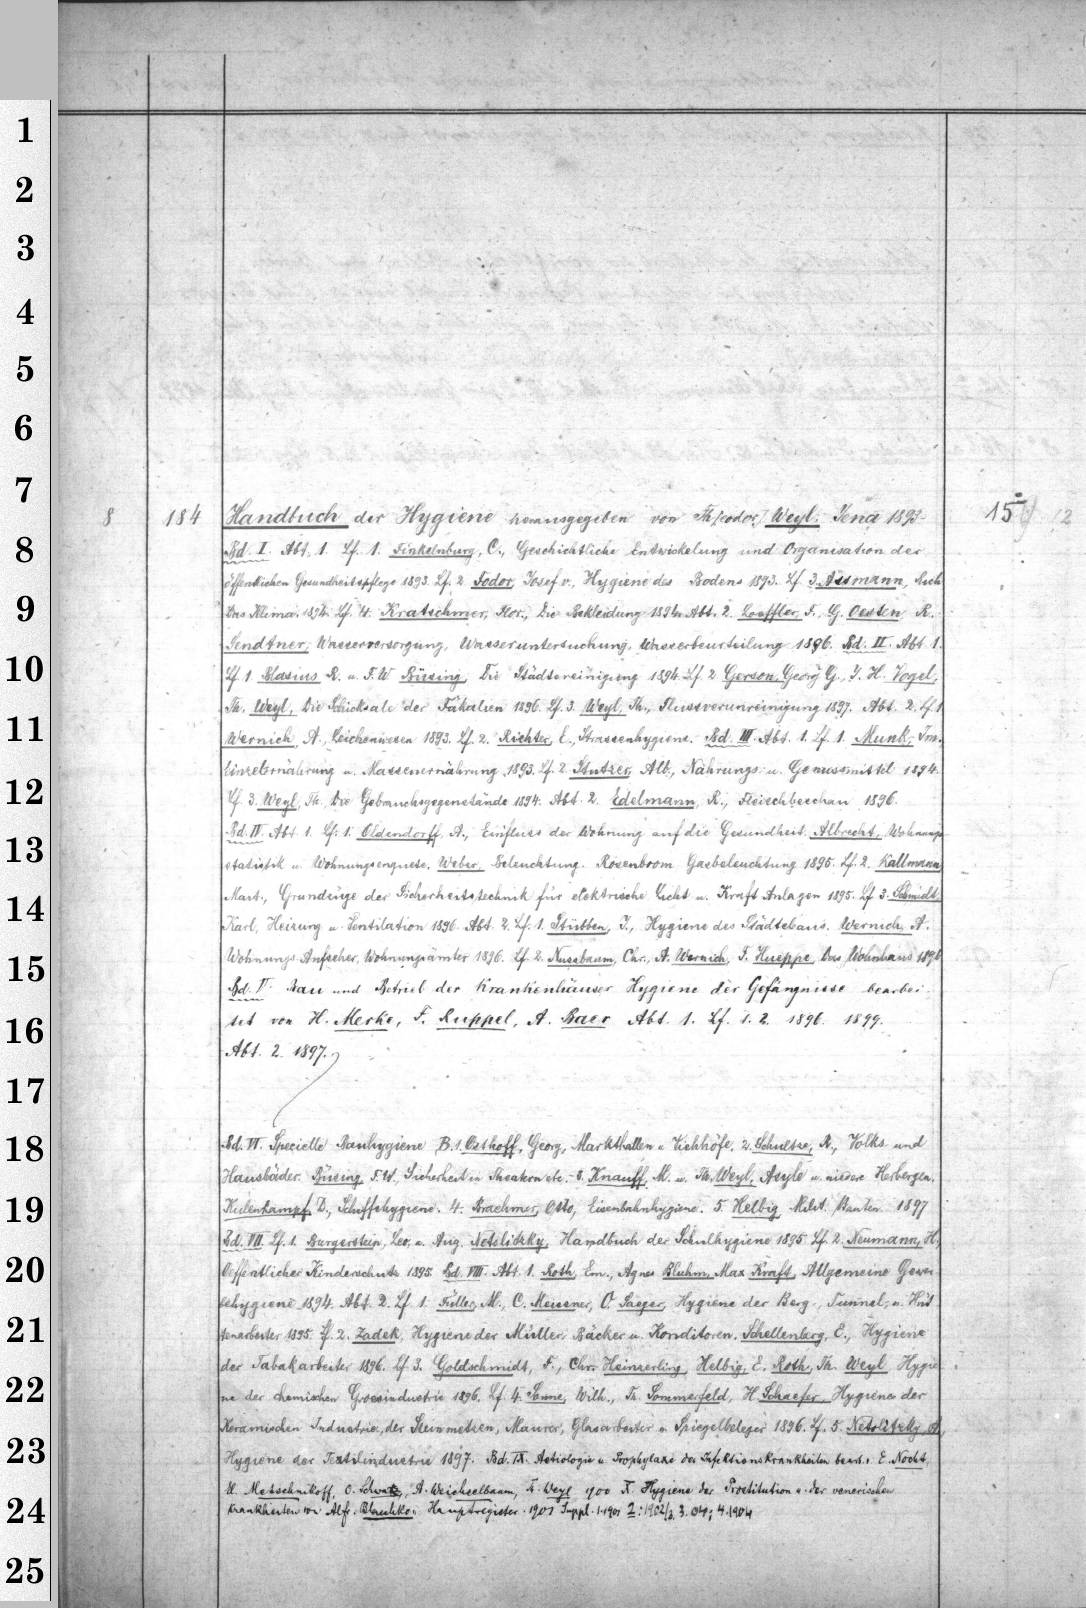 1
2
3
4
5
6
7
8
9
10
11
12
13
14
15
16
17
18
19
20
21
22
23
24
25
8 184 Handbuch der Hygiene herausgegeben von Th(eodor) Weyl. Jena 1893- 15 12
Bd. I. Abt. 1. Lf. 1. Finkelnburg, C., Geschichtliche Entwickelung und Organisation der
öffentlichen Gesundheitspflege 1893. Lf. 2. Fodor, Josef v., Hygiene des Bodens 1893. Lf. 3. Assmann, Rich
Das Klima. 1894. Lf. 4. Kratschmer, Flor., Die Bekleidung 1894. Abt. 2. Loeffler, F., G. Oesten R.
Sendtner, Wasserversorgung, Wasseruntersuchung, Wasserbeurteilung 1896. Bd. II. Abt. 1.
Lf. 1. Blasius R. u. F. W. Büsing, Die Städtereinigung 1894. Lf. 2 Gerson, Georg G., J. H. Vogel,
Th. Weyl, Die Schicksale der Fäkalien 1896. Lf. 3. Weyl, Th., Flussverunreinigung 1897. Abt. 2. Lf. 1
Wernich, A., Leichenwesen 1893. Lf. 2. Richter, E., Strassenhygiene. Bd. III. Abt. 1. Lf. 1. Munk, Im.
Einzelernährung u. Massenernährung 1893. Lf. 2. Stutzer, Alb., Nahrungs- u. Genussmittel 1894.
Lf. 3. Weyl, Th. Die Gebrauchsgegenstände 1894. Abt. 2. Edelmann, R., Fleischbeschau 1896.
Bd. IV. Abt. 1. Lf. 1. Oldendorff, A., Einfluss der Wohnung auf die Gesundheit. Albrecht, Wohnungs
statistik u. Wohnungsenquete. Weber, Beleuchtung. Rosenboom Gasbeleuchtung 1895. Lf. 2. Kallmann
Mart., Grundzüge der Sicherheitstechnik für elektrische Licht u. Kraft Anlagen 1895. Lf. 3. Schmidt,
Karl, Heizung u. Ventilation 1896. Abt. 2. Lf. 1. Stübben, J., Hygiene des Städtebaus. Wernich, A.
Wohnungs-Aufseher, Wohnungsämter 1896. Lf. 2. Nussbaum, Chr., A. Wernich, F. Hueppe, Das Wohnhaus 1896
Bd. V. Bau und Betrieb der Krankenhäuser Hygiene der Gefängnisse bearbei-
tet von H. Merke, F. Ruppel, A. Baer Abt. 1. Lf. 1. 2. 1896. 1899.
Abt. 2. 1897.
Bd. VI. Specielle Bauhygiene B. 1. Osthoff, Georg, Markthallen u. Viehhöfe. 2. Schultze, R., Volks und
Hausbäder. Büsing F. W., Sicherheit in Theatern etc. 3. Knauff, M. u. Th. Weyl, Asyle u. niedere Herbergen.
Kulenkampf D., Schiffshygiene. 4. Braehmer, Otto, Eisenbahnhygiene. 5. Helbig Milit. Bauten. 1897
Bd. VII. Lf. 1. Burgerstein, Leo, u. Aug. Netolitzky, Handbuch der Schulhygiene 1895. Lf. 2. Neumann, H.,
Oeffentlicher Kinderschutz 1895. Bd. VIII. Abt. 1. Roth, Em., Agnes Bluhm, Max Kraft, Allgemeine Gewer-
behygiene 1894. Abt. 2. Lf. 1. Füller, M., C. Meissner, O. Saeger, Hygiene der Berg-, Tunnel-, u. Hüt-
tenarbeiter 1895. Lf. 2. Zadek, Hygiene der Müller, Bäcker u. Konditoren. Schellenberg, E., Hygiene
der Tabakarbeiter 1896. Lf. 3. Goldschmidt, F., Chr. Heinzerling, Helbig, E. Roth, Th. Weyl Hygie
ne der chemischen Grossindustrie 1896. Lf. 4. Sonne, Wilh., Th. Sommerfeld, H. Schaefer, Hygiene der
Keramischen Industrie, der Steinmetzen, Maurer, Glasarbeiter u. Spiegelbeleger 1896. Lf. 5. Netolitzky A.,
Hygiene der Textilindustrie 1897. Bd. IX. Aetiologie u. Prophylaxe der Infektionskrankheiten bearb. v. E. Nocht,
E. Metschnikoff, O. Schwarz, A. Weichselbaum, Th. Weyl 1900 X. Hygiene der Prostitution u. der venerischen
Krankheiten von Alfr. Blaschko. Hauptregister. 1901 Suppl. 1. 1901 2: 1902/3. 3. 04; 4. 1904